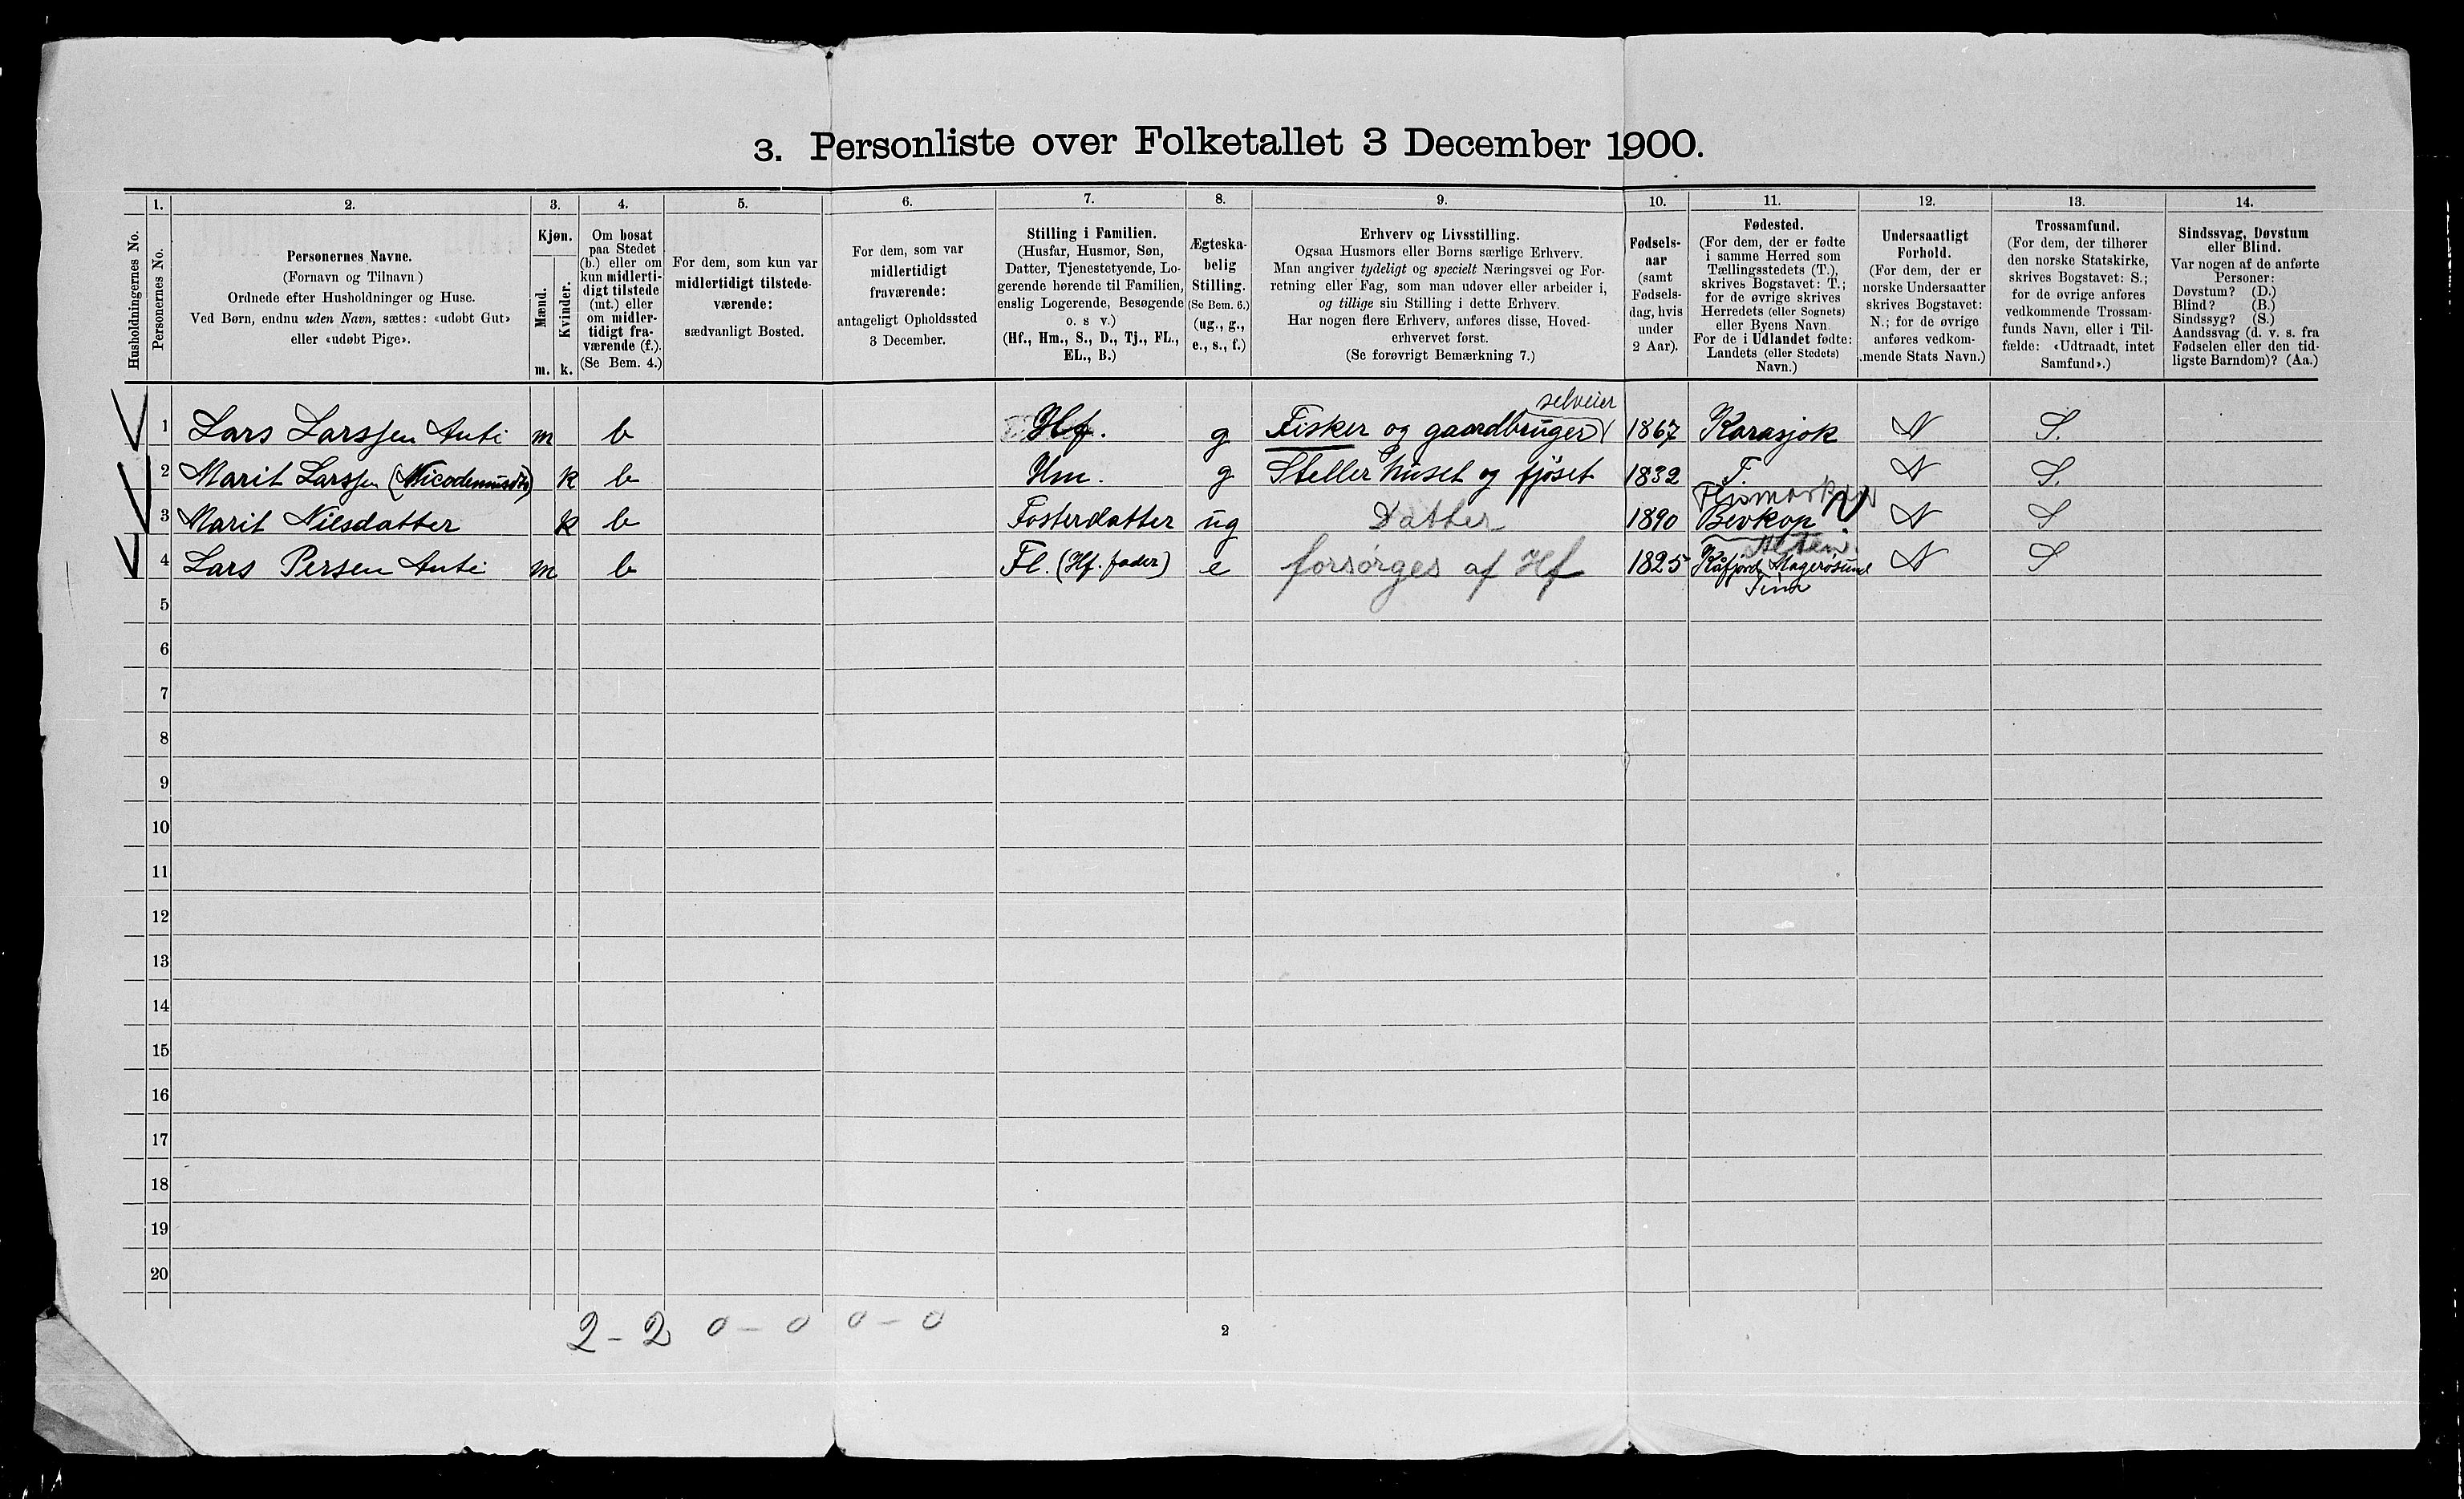 3. Personliste over Folketallet 3 December 1900.
Husholdningernes No.
1.
Personernes No.
2.
Personernes Navne.
(Fornavn og Tilnavn.)
Ordnede efter Husholdninger og Huse.
Ved Børn, endnu uden Navn, sættes: «udøbt Gut»
eller «udøbt Pige».
3.
Kjøn.
Mænd.
Kvinder.
m. k.
4.
Om bosat
paa Stedet
(b.) eller om
kun midlerti-
digt tilstede
(mt.) eller
om midler-
tidigt fra-
værende (f.).
(Se Bem. 4.)
5.
For dem, som kun var
midlertidigt tilstede-
værende:
sædvanligt Bosted.
6.
For dem, som var
midlertidigt
fraværende:
antageligt Opholdssted
3 December.
7.
Stilling i Familien.
(Husfar, Husmor, Søn,
Datter, Tjenestetyende, Lo-
gerende hørende til Familien,
enslig Logerende, Besøgende
o. s v.)
(Hf., Hm., S., D., Tj., FL.,
EL., B.)
8.
Ægteska-
belig
Stilling.
(Se Bem. 6.)
(ug., g.,
e., s., f.)
9.
Erhverv og Livsstilling.
Ogsaa Husmors eller Børns særlige Erhverv.
Man angiver tydeligt og specielt Næringsvei og For-
retning eller Fag, som man udøver eller arbeider i,
og tillige sin Stilling i dette Erhverv.
Har nogen flere Erhverv, anføres disse, Hoved-
erhvervet først.
(Se forøvrigt Bemærkning 7.)
10.
Fødsels-
aar
(samt
Fødsels-
dag, hvis
under
2 Aar).
11.
Fødested.
(For dem, der er fødte
i samme Herred som
Tællingsstedets (T.),
skrives Bogstavet: T.;
for de øvrige skrives
Herredets (eller Sognets)
eller Byens Navn.
For de i Udlandet fødte:
Landets (eller Stedets)
Navn.)
12.
Undersaatligt
Forhold.
(For dem, der er
norske Undersaatter
skrives Bogstavet:
N.; for de øvrige
anføres vedkom-
mende Stats Navn.)
13.
Trossamfund.
(For dem, der tilhører
den norske Statskirke,
skrives Bogstavet: S.;
for de øvrige anføres
vedkommende Trossam-
funds Navn, eller i Til-
fælde: «Udtraadt, intet
Samfund».)
14.
Sindssvag, Døvstum
eller Blind.
Var nogen af de anførte
Personer:
Døvstum? (D.)
Blind? (B.)
Sindssyg? (S.)
Aandssvag (d. v. s. fra
Fødselen eller den tid-
ligste Barndom)? (Aa.)
selveier
1 Lars Larssen Anti m b Hf. g Fisker og gaardbruger 1867 Karasjok N S.
2 Marit Larssen (Nicodemusdtr) k b Hm. g Steller huset og fjøset 1832 T. N S.
3 Marit Nilsdatter k b Fosterdatter ug Datter 1890 Bevkop N S
Alten.
4 Lars Persen Anti m b Fl. (Hf. fader) e forsørges af Hf 1825 Kåfjord, Magerøsund N S
5
6
7
8
9
10
11
12
13
14
15
16
17
18
19
20
2 - 2 0 - 0 0 - 0
2